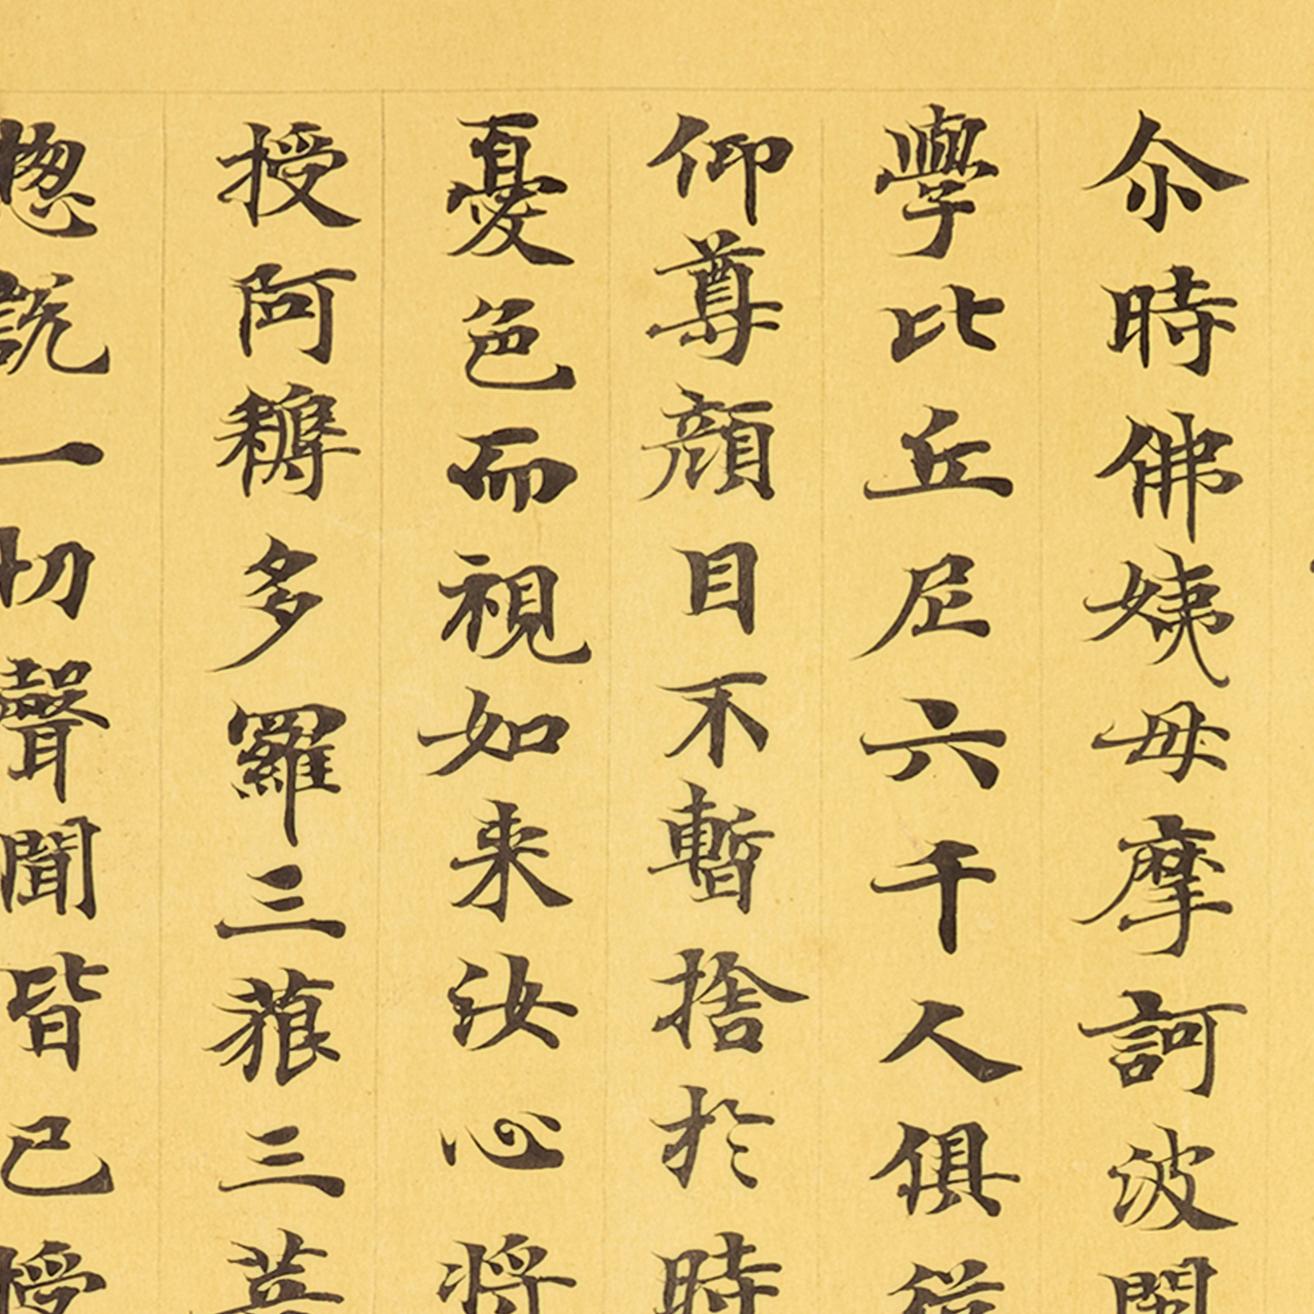 尒時佛姨母摩訶波闍
學比丘尼六千人俱從
仰尊顔目不暫捨於時
憂色而視如来汝心將
授阿耨多羅三藐三菩
惣説一切聲聞皆已授